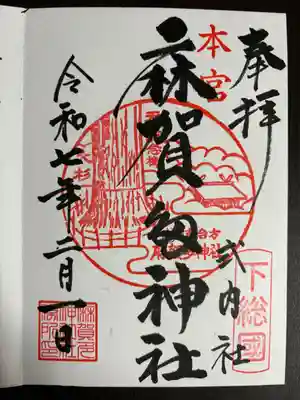 奉拝
式内社
下総國
本宮
麻賀多神社
大杉
台方
麻賀多神社
令和七年二月一日